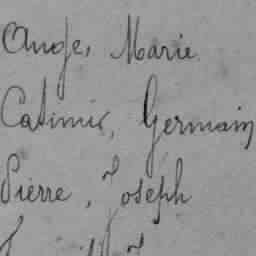 Ange, Marie
Casimir, Germain
Pierre, Joseph